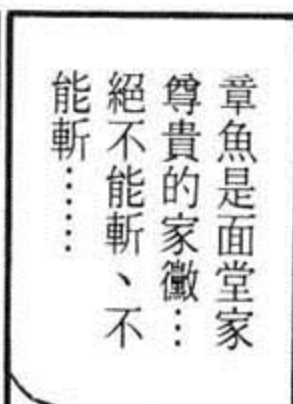 章魚是面堂家
尊貴的家徽⋯
絕不能斬、不
能斬⋯⋯